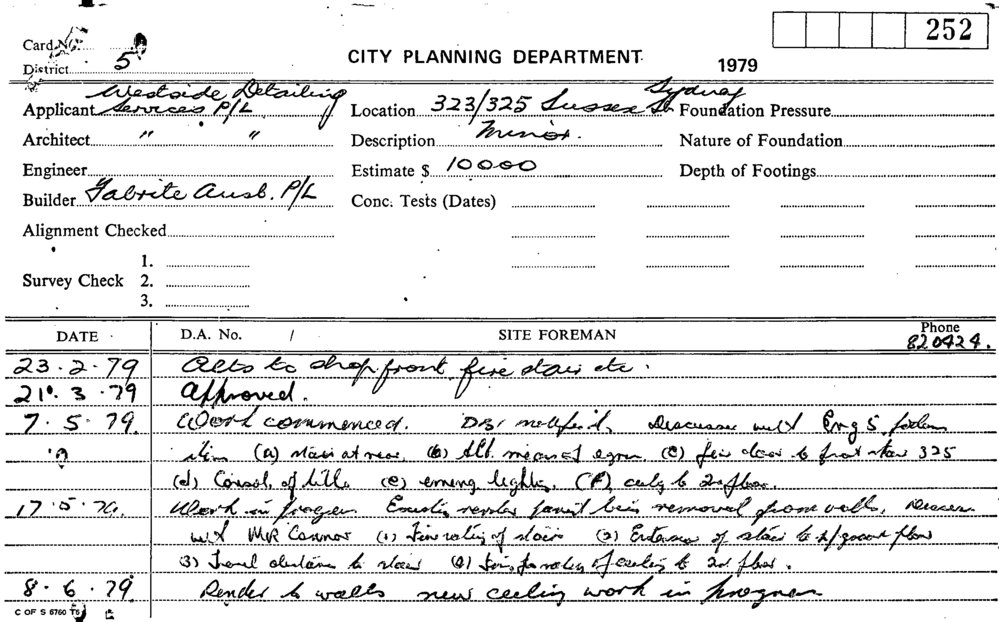 252
Card No.
CITY PLANNING DEPARTMENT
1979
District 5
Applicant Westside Detailing Services P/L
Location 323/325 Sussex St Sydney
Foundation Pressure
Architect " "
Description Minor.
Nature of Foundation
Engineer
Estimate $ 10000
Depth of Footings
Builder Fabrite Aust. P/L
Conc. Tests (Dates)
Alignment Checked
Survey Check 1.
2.
3.
DATE D.A. No. / SITE FOREMAN Phone 820424.
23.2.79 Alts to shopfront fire stair etc.
21.3.79 Approved.
7.5.79. Work commenced. DBI notified. Discussed with Eng S
items (a) stair at rear. (b) Alt. means of egress (c) fire door to front stair 325
(d) Consol. of title (e) emerg lighting. (f) ceilg to 2nd floor.
17.5.79. Work in progress. Existing render being removed from walls. Discuss
with Mr Connor (1) Fire rating of stairs (2) Extension of stair to floor
3) to stair (4) Fire rating of ceiling to 2nd floor.
8.6.79. Render to walls new ceiling work in progress
C OF S 6760